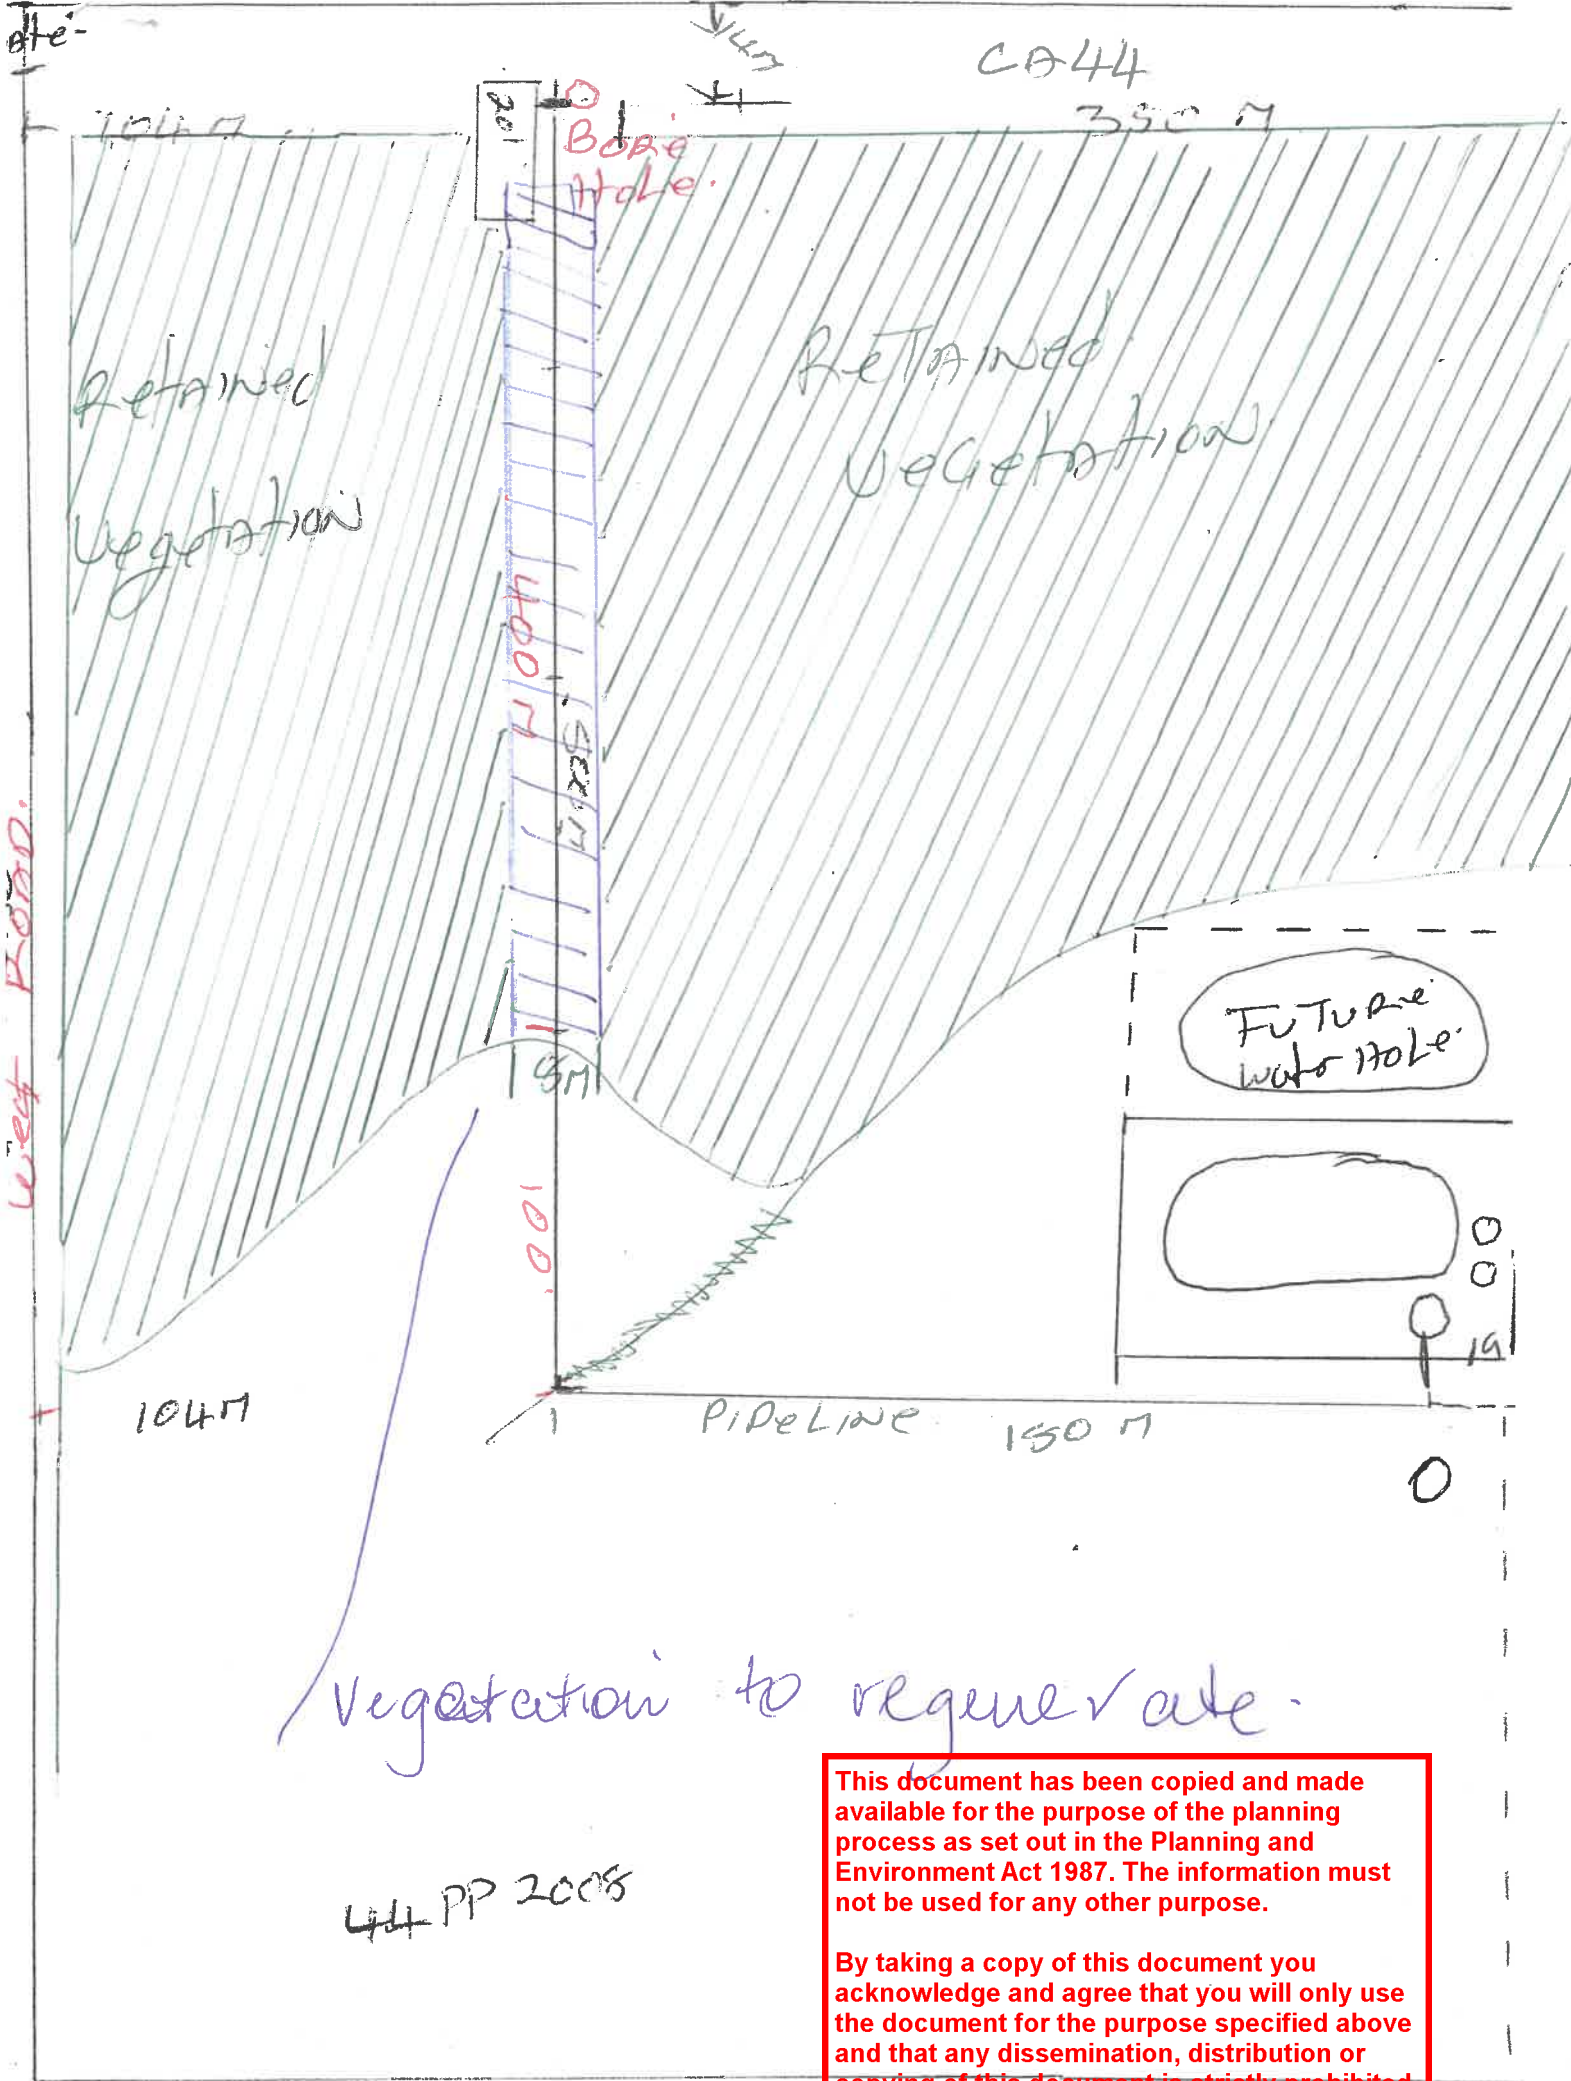 CA44
4M
104M
350 M
20'
Bore
Hole.
Retained
Vegetation
Retained
Vegetation
400 M
West Road.
Future
water Hole.
8M
100
104M
Pipeline
150 M
Vegetation to regenerate.
44 PP 2008
This document has been copied and made
available for the purpose of the planning
process as set out in the Planning and
Environment Act 1987. The information must
not be used for any other purpose.
By taking a copy of this document you
acknowledge and agree that you will only use
the document for the purpose specified above
and that any dissemination, distribution or
copying of this document is strictly prohibited